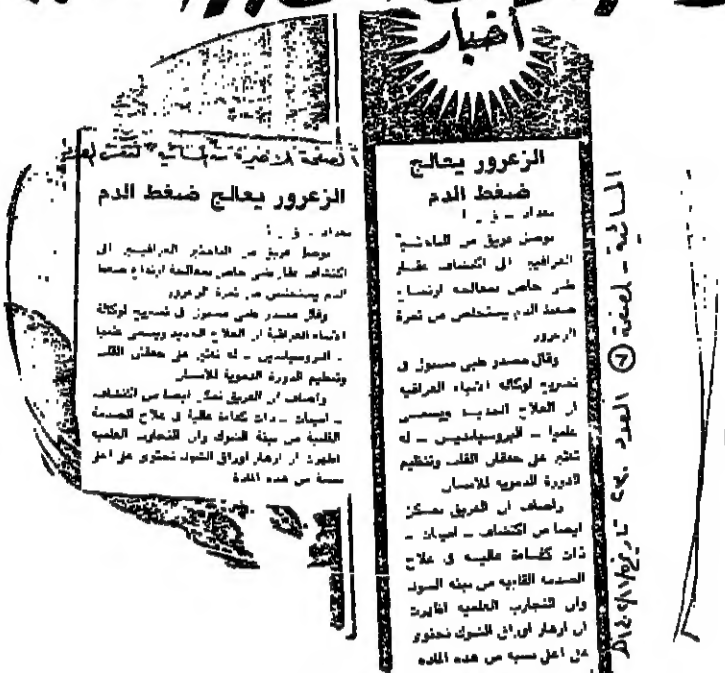 أخبار
الزعرور يعالج
ضغط الدم
بغداد - و . ا
توصل فريق من الباحثين
العراقيين الى اكتشاف عقار
طبي خاص بمعالجة ارتفاع
ضغط الدم يستخلص من ثمرة
الزعرور
وقال مصدر طبي مسؤول في
تصريح لوكالة الانباء العراقية
ان العلاج الجديد ويسمى
علميا - البروسيانديين - له
تاثير على عضلة القلب وتنظيم
الدورة الدموية للانسان
واضاف ان الفريق تمكن
ايضا من اكتشاف - اميدات -
ذات كفاءة عالية في علاج
الصدمة القلبية من
وان التجارب العلمية اظهرت
ان ازهار اوراق الشوك تحتوي
على اعلى نسبة من هذه المادة
المسائية - الصفحة ٧ العدد تاريخ
الصفحة الاخيرة - المسائية
الزعرور يعالج ضغط الدم
بغداد - و . ا
توصل فريق من الباحثين العراقيين الى
اكتشاف عقار طبي خاص بمعالجة ارتفاع ضغط
الدم يستخلص من ثمرة الزعرور
وقال مصدر طبي مسؤول في تصريح لوكالة
الانباء العراقية ان العلاج الجديد ويسمى علميا
- البروسيانديين - له تاثير على عضلة القلب
وتنظيم الدورة الدموية للانسان
واضاف ان الفريق تمكن ايضا من اكتشاف
- اميدات - ذات كفاءة عالية في علاج الصدمة
القلبية من وان التجارب العلمية
اظهرت ان ازهار اوراق الشوك تحتوي على اعلى
نسبة من هذه المادة